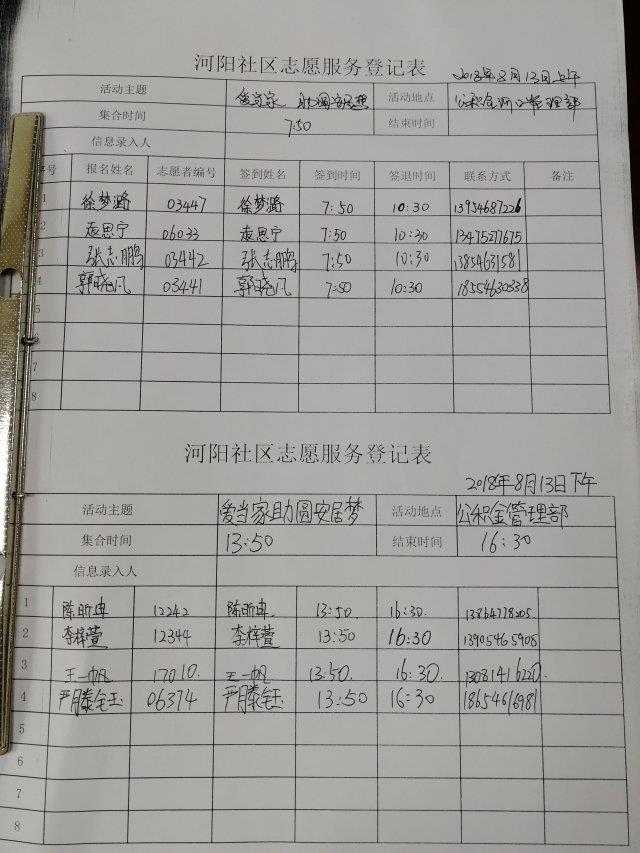 河阳社区志愿服务登记表
2018年8月13日上午
活动主题 爱当家 助圆安居梦 活动地点 公积金 管理部
集合时间 7:50 结束时间
信息录入人
序号 报名姓名 志愿者编号 签到姓名 签到时间 签退时间 联系方式 备注
1 徐梦潞 03447 徐梦潞 7:50 10:30 13954687226
2 逯思宁 06033 逯思宁 7:50 10:30 13475277675
3 张志鹏 03442 张志鹏 7:50 10:30 13854631581
4 郭晓凡 03441 郭晓凡 7:50 10:30 18554630338
5
6
7
8
河阳社区志愿服务登记表
2018年8月13日下午
活动主题 爱当家助圆安居梦 活动地点 公积金管理部
集合时间 13:50 结束时间 16:30
信息录入人
1 陈昕冉 12242 陈昕冉. 13:50. 16:30. 13864778205.
2 李梓萱 12344 李梓萱 13:50 16:30 13905465908
3 王一帆 17010. 王一帆 13:50. 16:30. 13081416220.
4 严滕钰玉 06374 严滕钰玉 13:50 16:30 18654616981
5
6
7
8